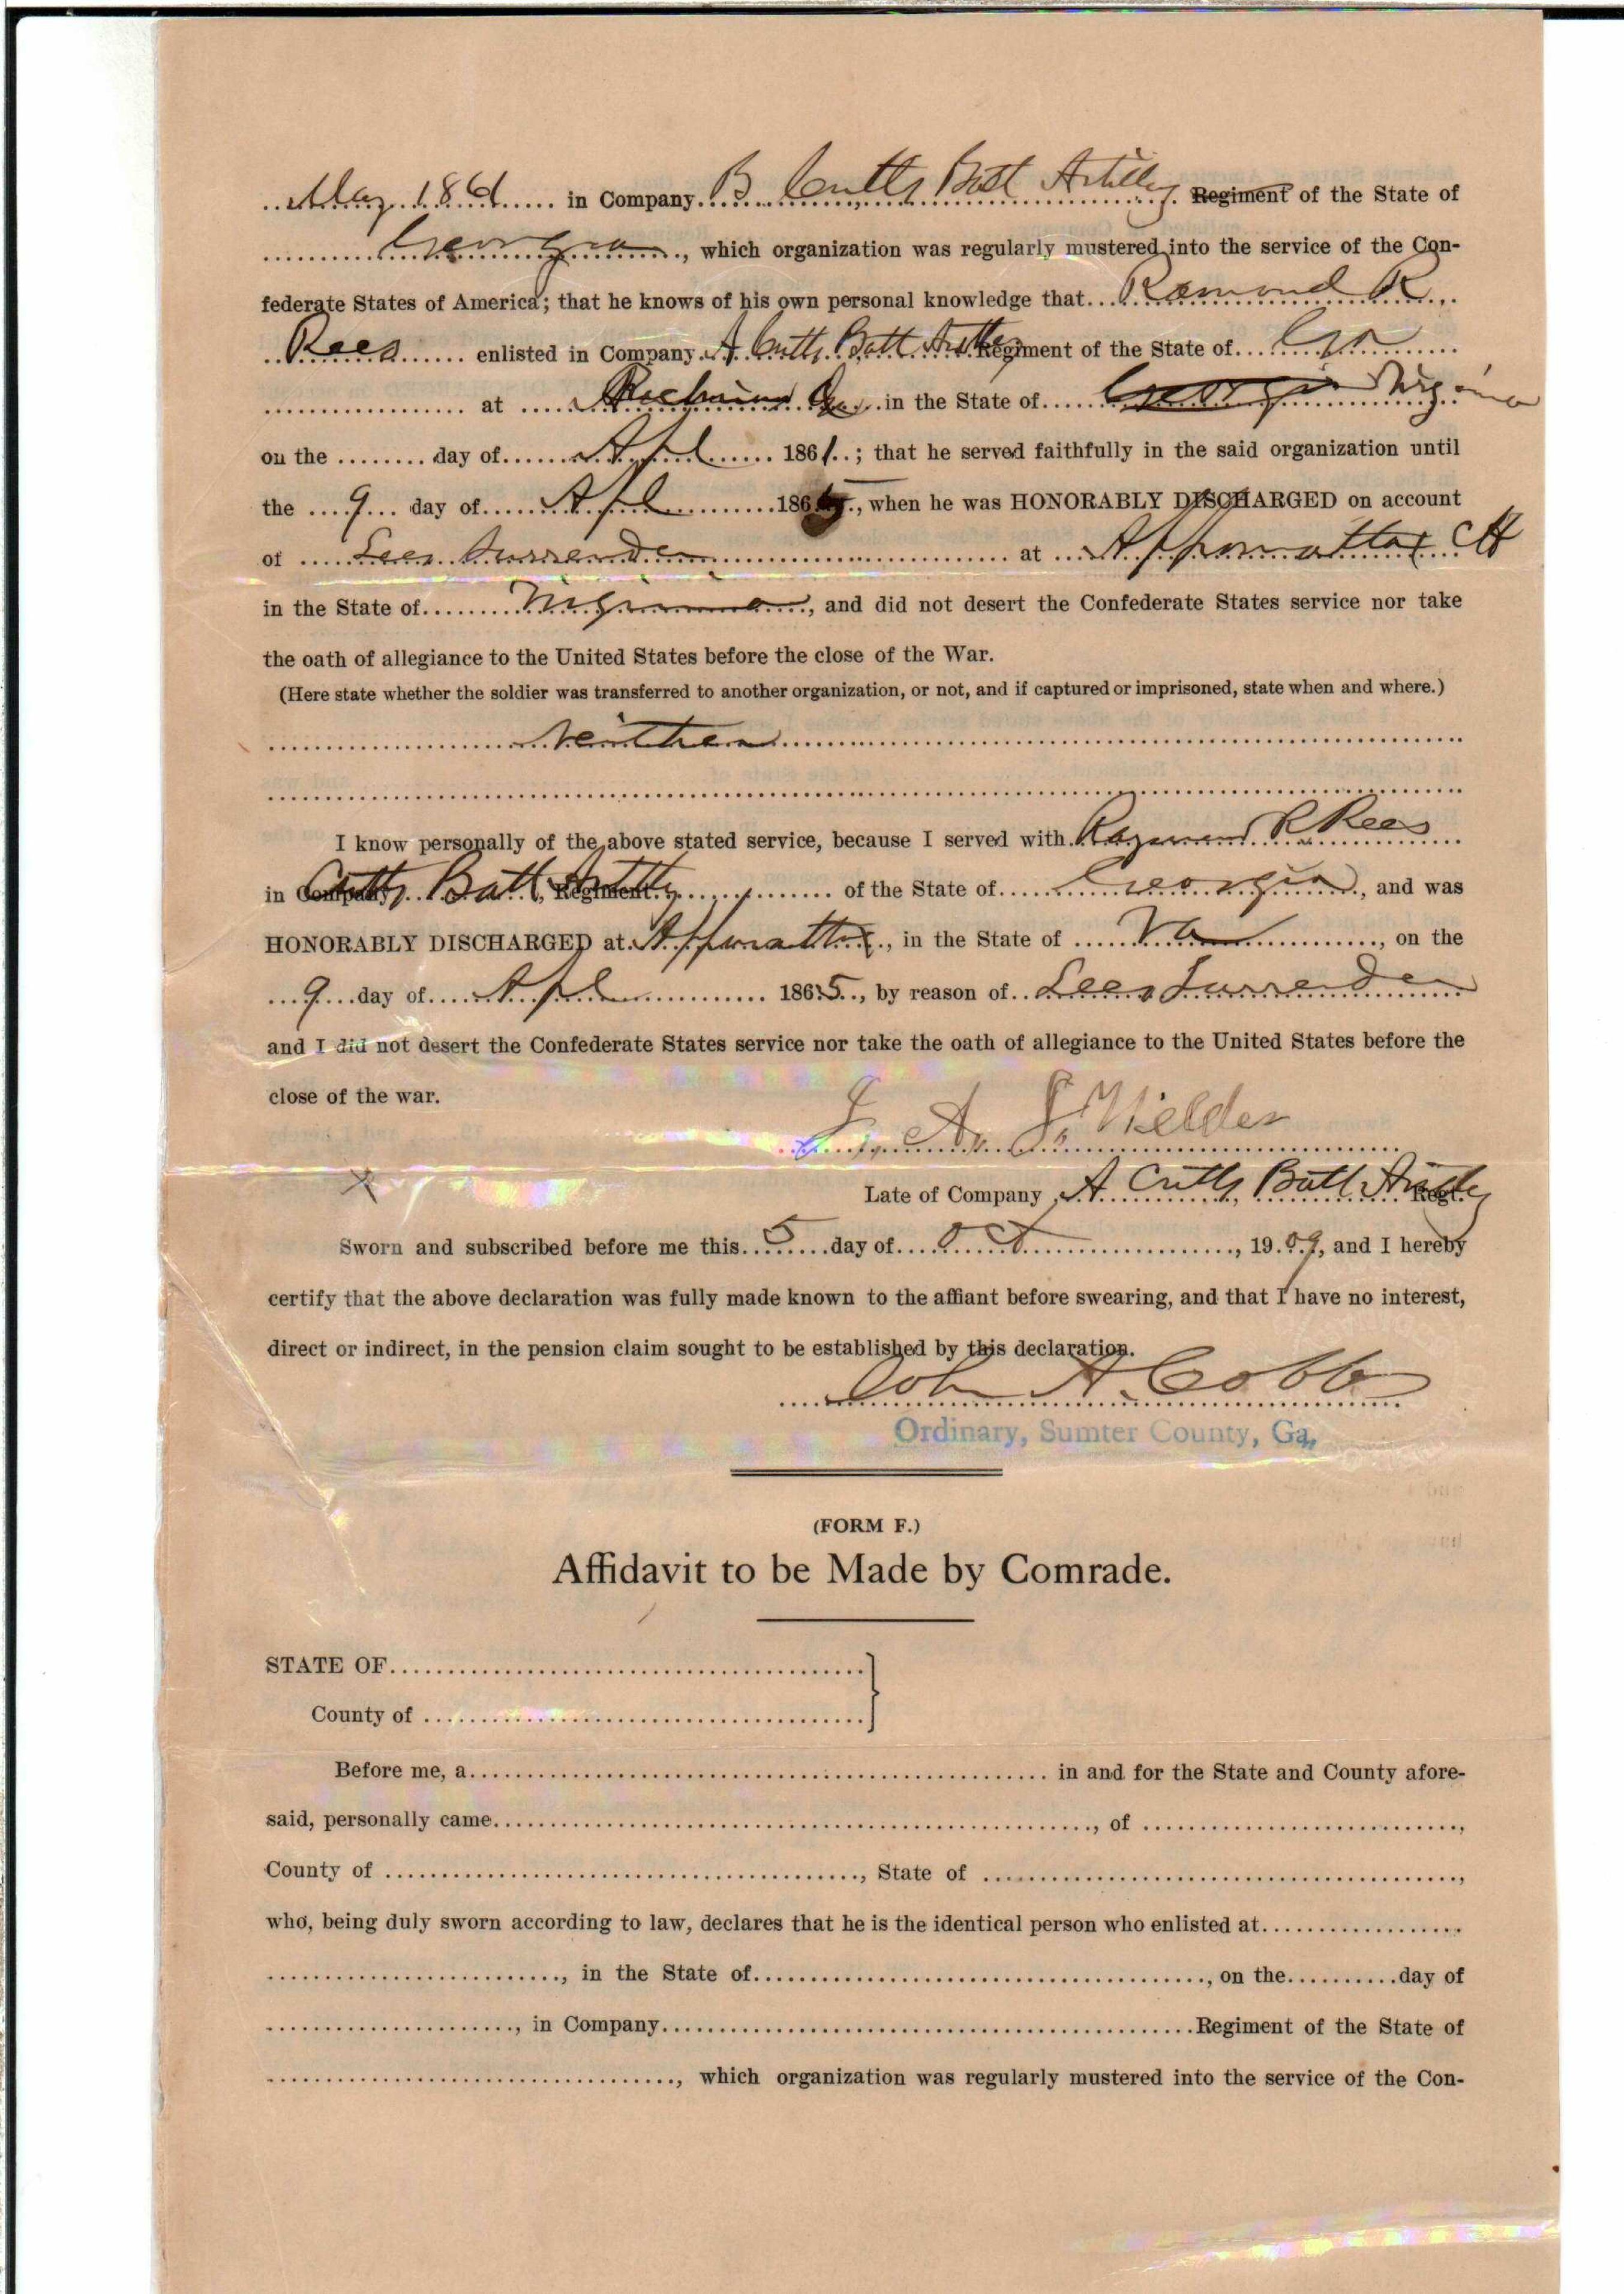 May 1861 in Company B Cutts Batt Artillery Regiment of the State of
Georgia, which organization was regularly mustered into the service of the Con-
federate States of America; that he knows of his own personal knowledge that Ramond R
Rees enlisted in Company A Cutts Batt Artlly Regiment of the State of Ga
at Richmond in the State of Georgia Virginia
on the day of Apl 1861; that he served faithfully in the said organization until
the 9 day of Apl 1865, when he was HONORABLY DISCHARGED on account
of Lees Surrender at Appomattox CH
in the State of Virginia, and did not desert the Confederate States service nor take
the oath of allegiance to the United States before the close of the War.
(Here state whether the soldier was transferred to another organization, or not, and if captured or imprisoned, state when and where.)
Neither
I know personally of the above stated service, because I served with Raymond R Rees
in Company Cutts Batt, Regiment Artlly of the State of Georgia, and was
HONORABLY DISCHARGED at Appomattox, in the State of Va, on the
9 day of Apl 1865, by reason of Lees Surrender
and I did not desert the Confederate States service nor take the oath of allegiance to the United States before the
close of the war.
A. S.
Late of Company A Cutts Batt Artlly Regt.
Sworn and subscribed before me this 5 day of Oct, 1909, and I hereby
certify that the above declaration was fully made known to the affiant before swearing, and that I have no interest,
direct or indirect, in the pension claim sought to be established by this declaration.
John A. Cobb
Ordinary, Sumter County, Ga,
(FORM F.)
Affidavit to be Made by Comrade.
STATE OF
County of
Before me, a in and for the State and County afore-
said, personally came, of,
County of, State of,
who, being duly sworn according to law, declares that he is the identical person who enlisted at
, in the State of, on the day of
, in Company Regiment of the State of
, which organization was regularly mustered into the service of the Con-